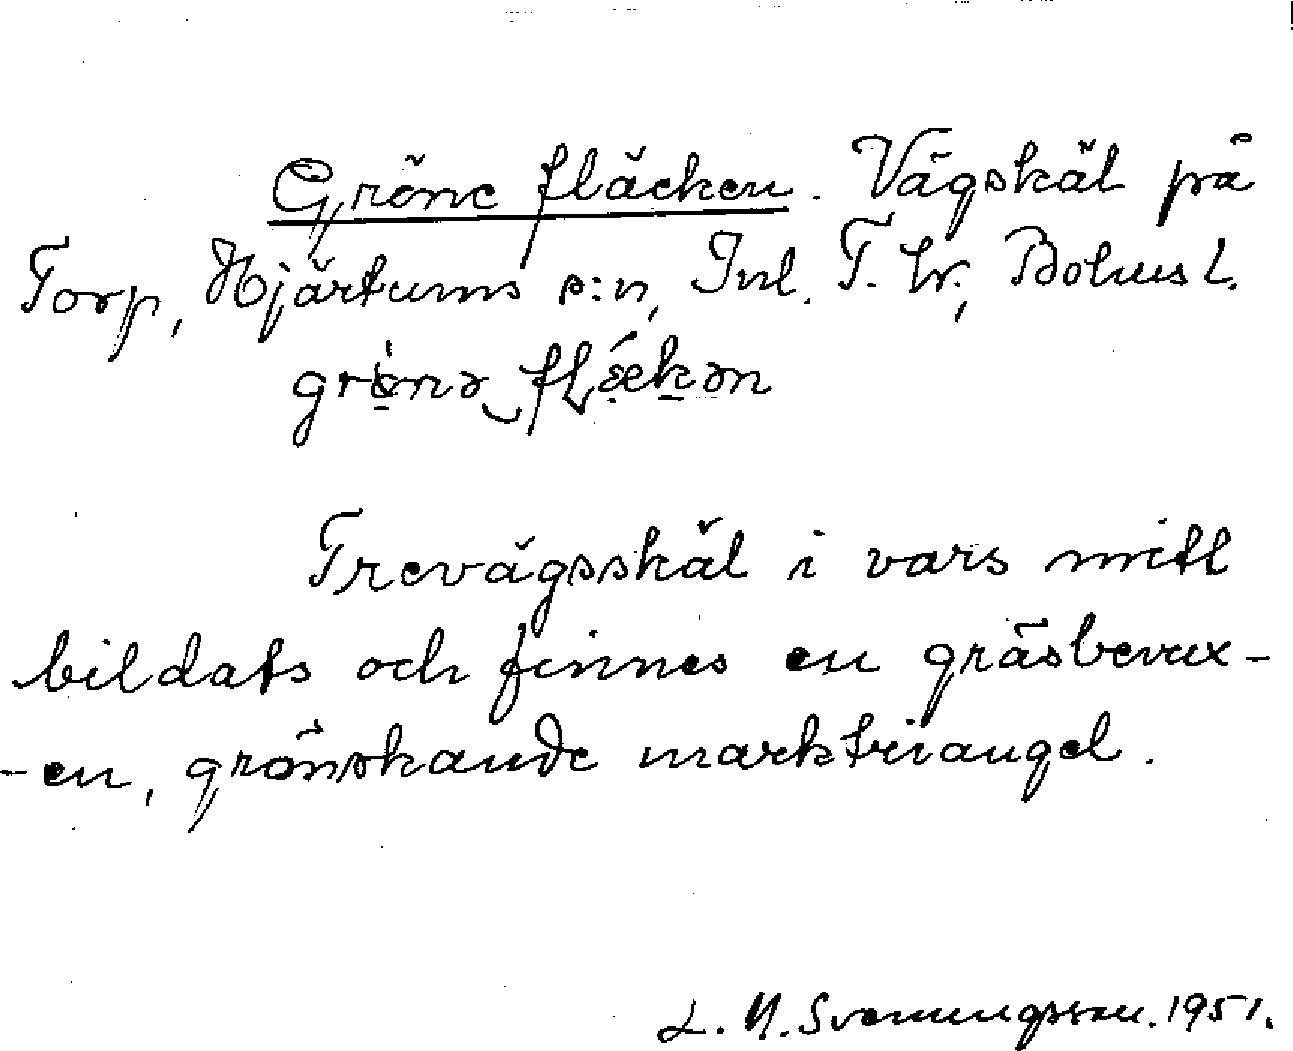 Gröne fläcken. Vägskäl på
Torp, Hjärtums s:n, Inl. T. hr, Bohusl.
Trevägsskäl i vars mitt
bildats och finnes en gräsbevux-
-en, grönskande marktriangel.
L. N. Svenningsson. 1951.